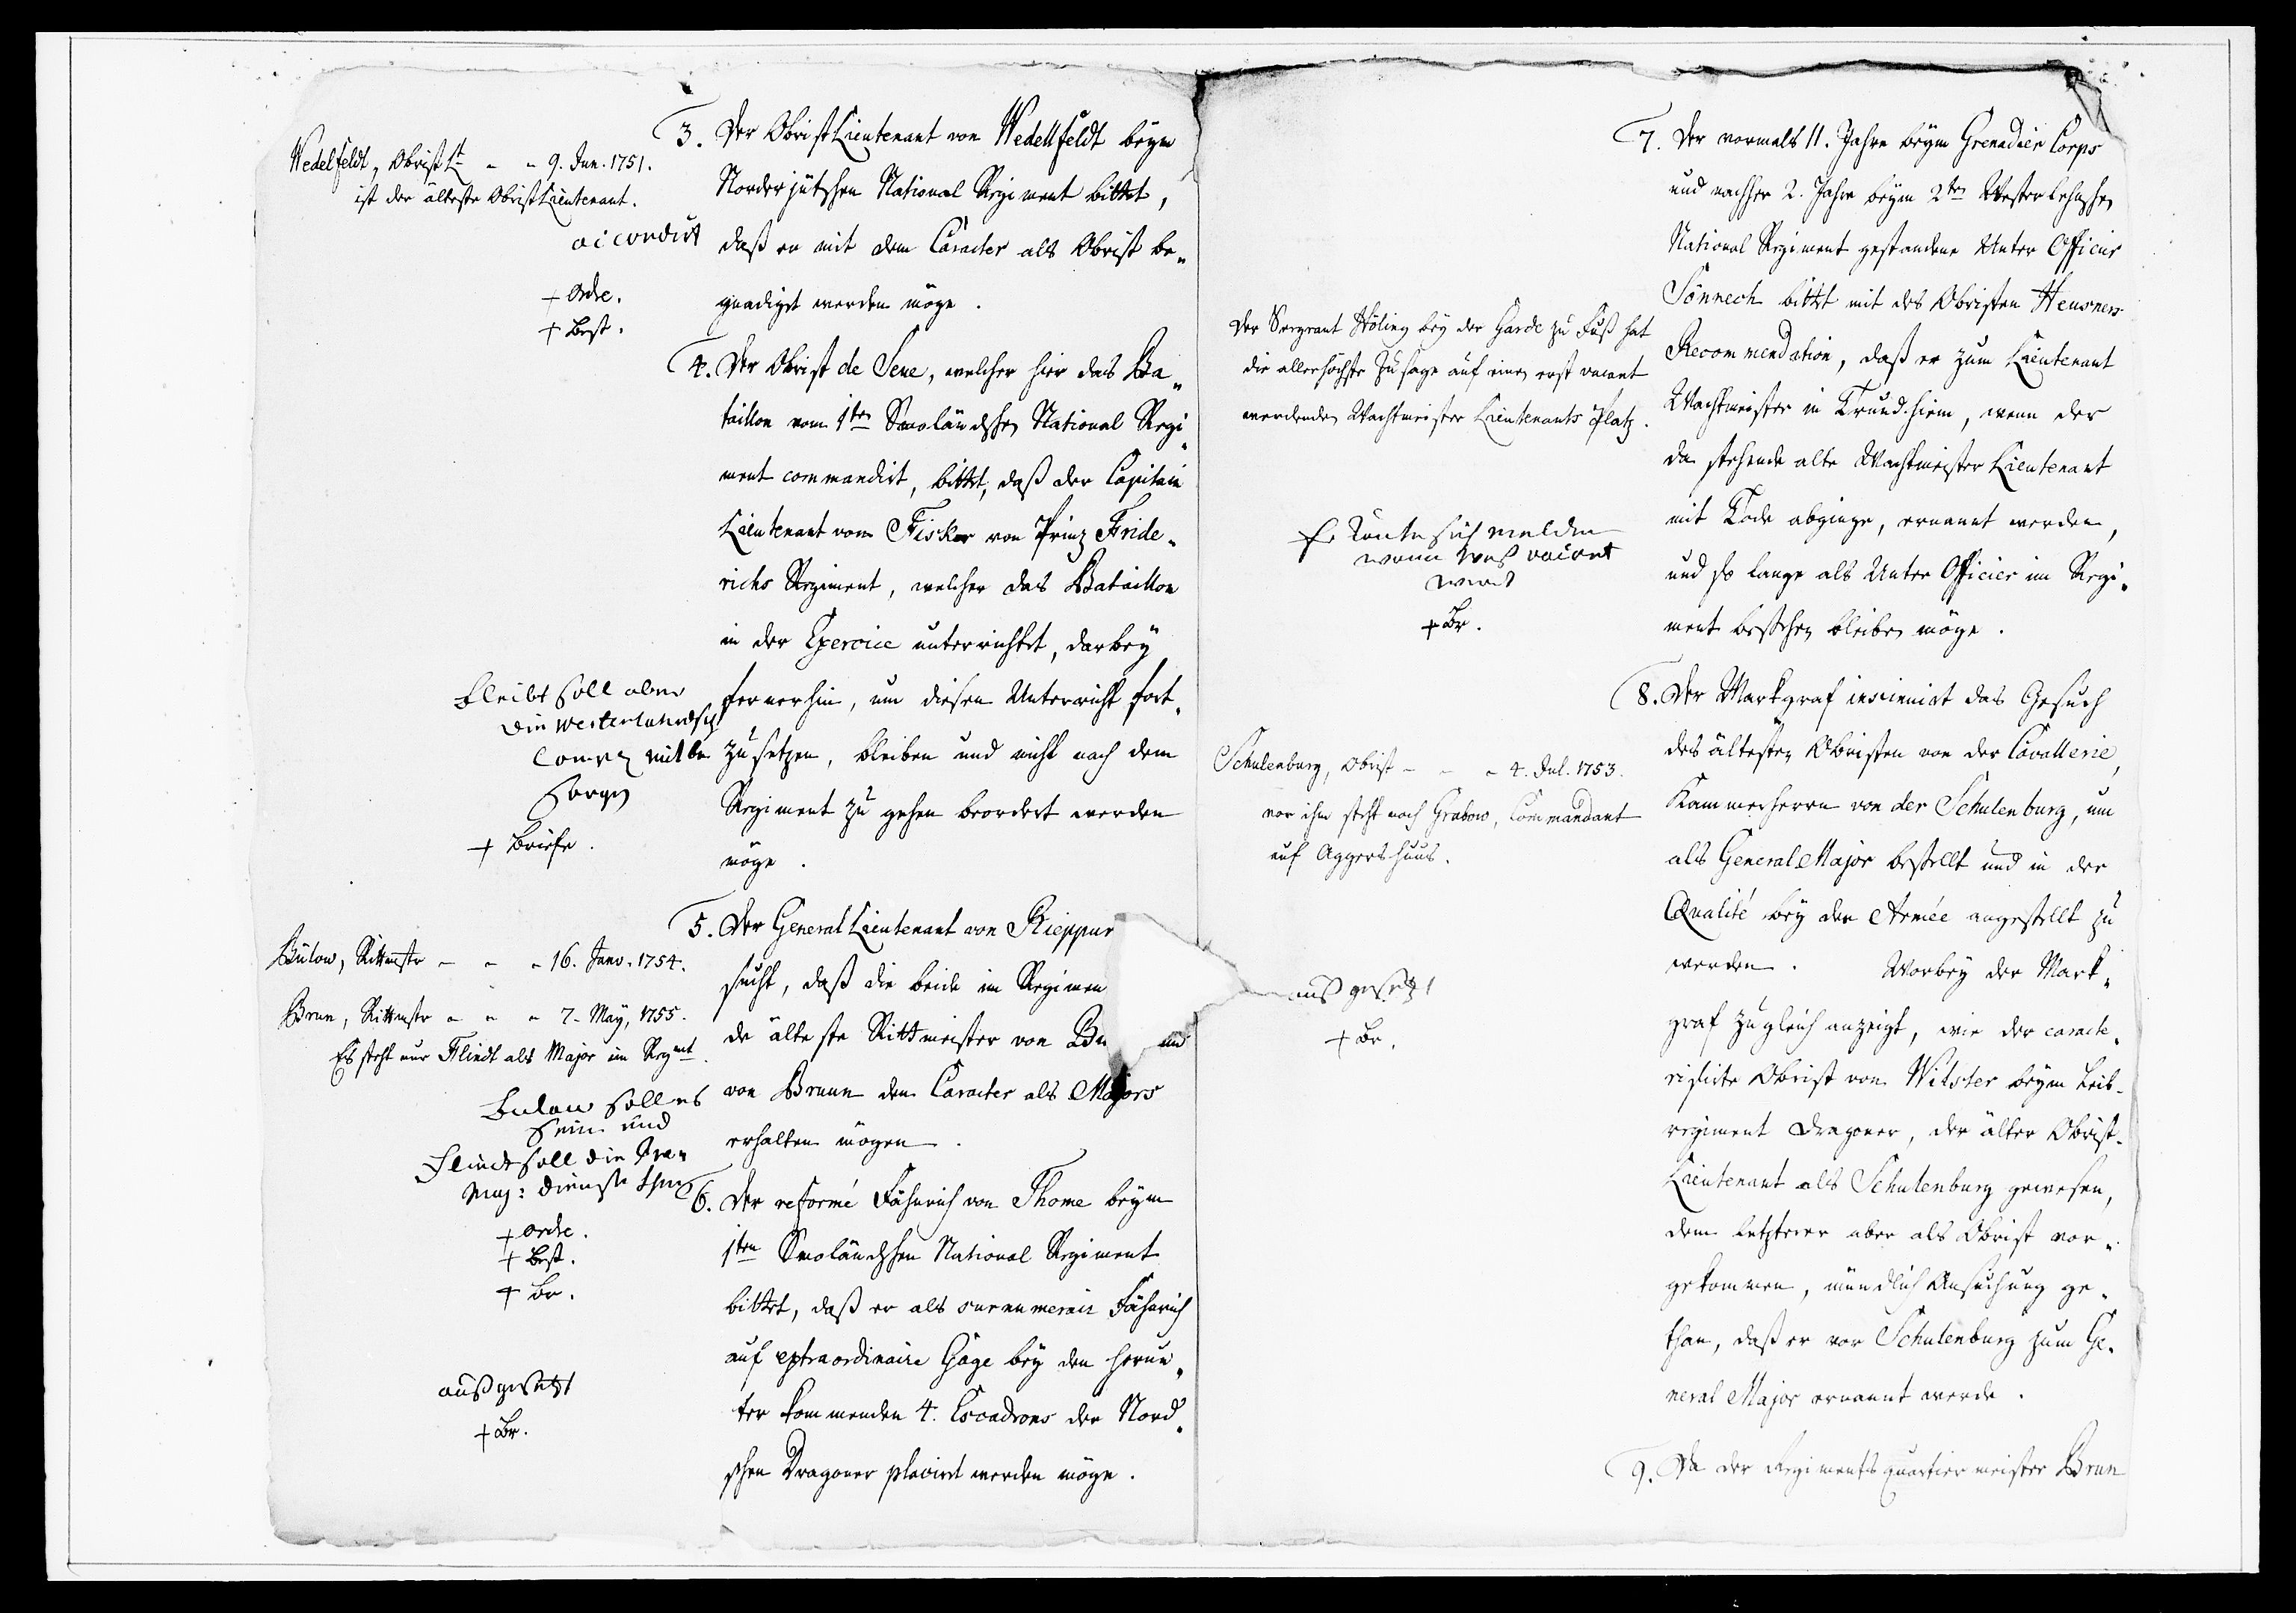 Wedelfeldt, Obrist Lt - - 9. Jun. 1751.
ist der älteste ObristLieutenant.
accordirt
+ Ordre.
+ Best.
3. Der ObristLieutenant von Wedellfeldt beym
Norderjütschen National Regiment bittet,
daß er mit dem Caracter als Obrist be-
gnadiget werden möge.
4. Der Obrist de Seue, welcher hier das Ba-
taillon vom 1ten Smoländschen National Regi-
ment commandirt, bittet, daß der Capitain
Lieutenant von Fisker von Prinz Fride-
richs Regiment, welcher das Bataillon
in der Exercice unterrichtet, darbey
fernerhin, um diesen Unterricht fort-
zusetzen, bleiben und nicht nach dem
Regiment zu gehen beordert werden
möge.
bleibt soll aber
die Westerlendsch
Comp mit be
sorgen
+ Briefe.
Bülow, Rittmstr - - - 16. Janv. 1754.
Brun, Rittmstr - - - 7. May, 1755.
Es steht nur Flindt als Major im Regmt.
Bulau soll es
sein und
Flindt soll die Pre-
Maj: dienste thun
+ Ordre.
+ Best.
+ Br.
5. Der General Lieutenant von Rieppur
sucht, daß die beide im Regimen
de älteste Rittmeister von Bu und
von Bruun den Caracter als Majors
erhalten mögen.
6. Der reformé Fähnrich von Thome beym
1ten Smoländschen National Regiment
bittet, daß er als surnumerair Fähnrich
auf extraordinaire Gage bey den herun-
ter kommenden 4. Escadrons der Nord-
schen Dragoner placirt werden möge.
außgesetzt
+ Br.
7. Der vormals 11. Jahre beym Grenadier Corps
und nachher 2. Jahre beym 2ten Westerlehnschen
National Regiment gestandene Unter Officier
Sönnech bittet mit des Obristen Heusners
Recommendation, daß er zum Lieutenant
Wachtmeister in Trundhiem, wenn der
da stehende alte Wachtmeister Lieutenant
mit Tode abginge, ernannt werden,
und so lange als Unter Officier im Regi-
ment bestehen bleiben möge.
Der Sergeant Höling bey der Garde zu Fuß hat
die allerhöchste Zusage auf einen erst vacant
werdenden Wachtmeister Lieutenants Platz.
Er konte sich melden
wenn was vacant
wird
+ Br.
8. Der Markgraf insinuirt das Gesuch
des ältesten Obristen von der Cavallerie,
Kammerherrn von der Schulenburg, um
als General Major bestellt und in der
Qualité bey der Armée angestellt zu
werden. Worbey der Mark-
graf zugleich anzeigt, wie der caracte-
risirte Obrist von Witster beym Leib-
regiment Dragoner, der älter Obrist-
Lieutenant als Schulenburg gewesen,
dem letzterer aber als Obrist vor-
gekommen, mündlich Ansuchung ge-
than, daß er vor Schulenburg zum Ge-
neral Major ernannt werde.
Schulenburg, Obrist - - - 4. Jul. 1753.
vor ihm steht noch Grabow, Commandant
auf Aggershuus.
ausgesetzt
+ Br.
9. Da der Regimentsquartiermeister Brun